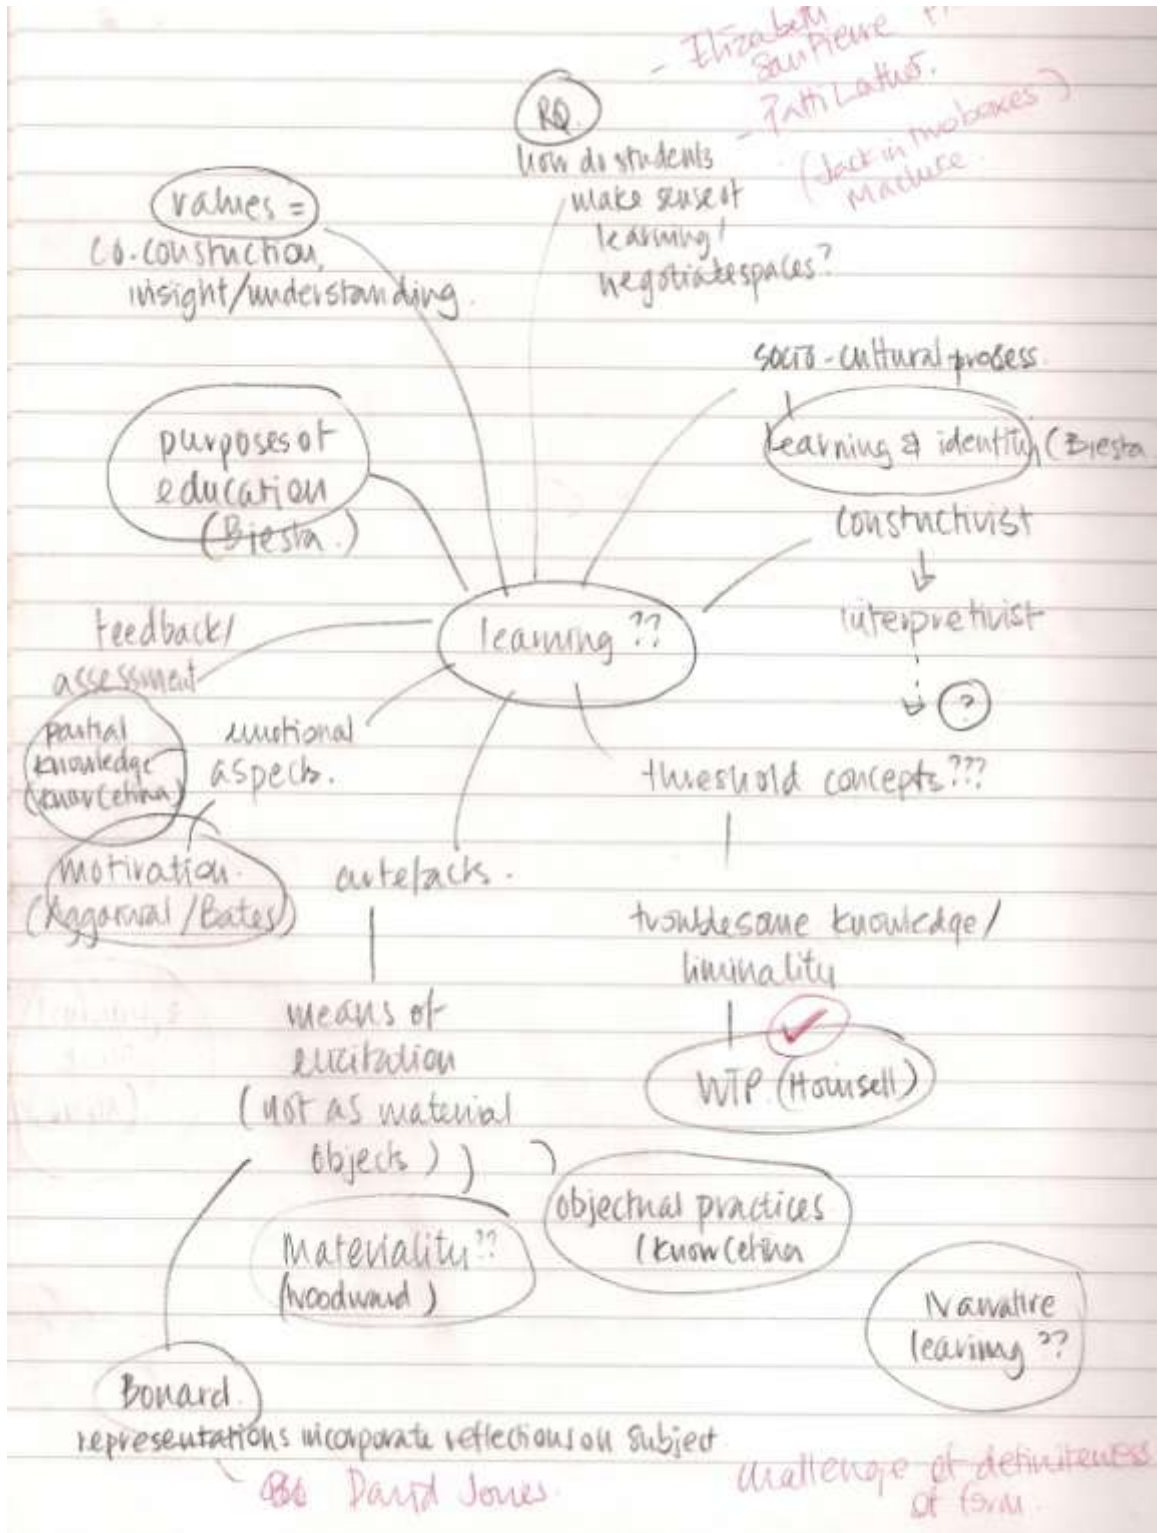 - Elizabeth
San Pierre
- Patti Lather.
(Jack in two boxes)
Maclure.
RQ.
How do students
make sense of
learning/
negotiate spaces?
values =
co-construction,
insight/understanding.
socio-cultural process.
learning & identity (Biesta
purposes of
education
(Biesta.)
constructivist
interpretivist
?
learning ??
feedback/
assessment
partial
knowledge
(Knorr Cetina)
emotional
aspects.
threshold concepts???
motivation.
(Aggarwal/Bates)
artefacts.
troublesome knowledge/
liminality
means of
elicitation
(not as material
objects))
WTP. (Hounsell)
objectual practices
(Knorr Cetina
Materiality??
(Woodward)
Narrative
learning ??
Bonard.
representations incorporate reflections on subject
David Jones.
challenge of definiteness
of form.